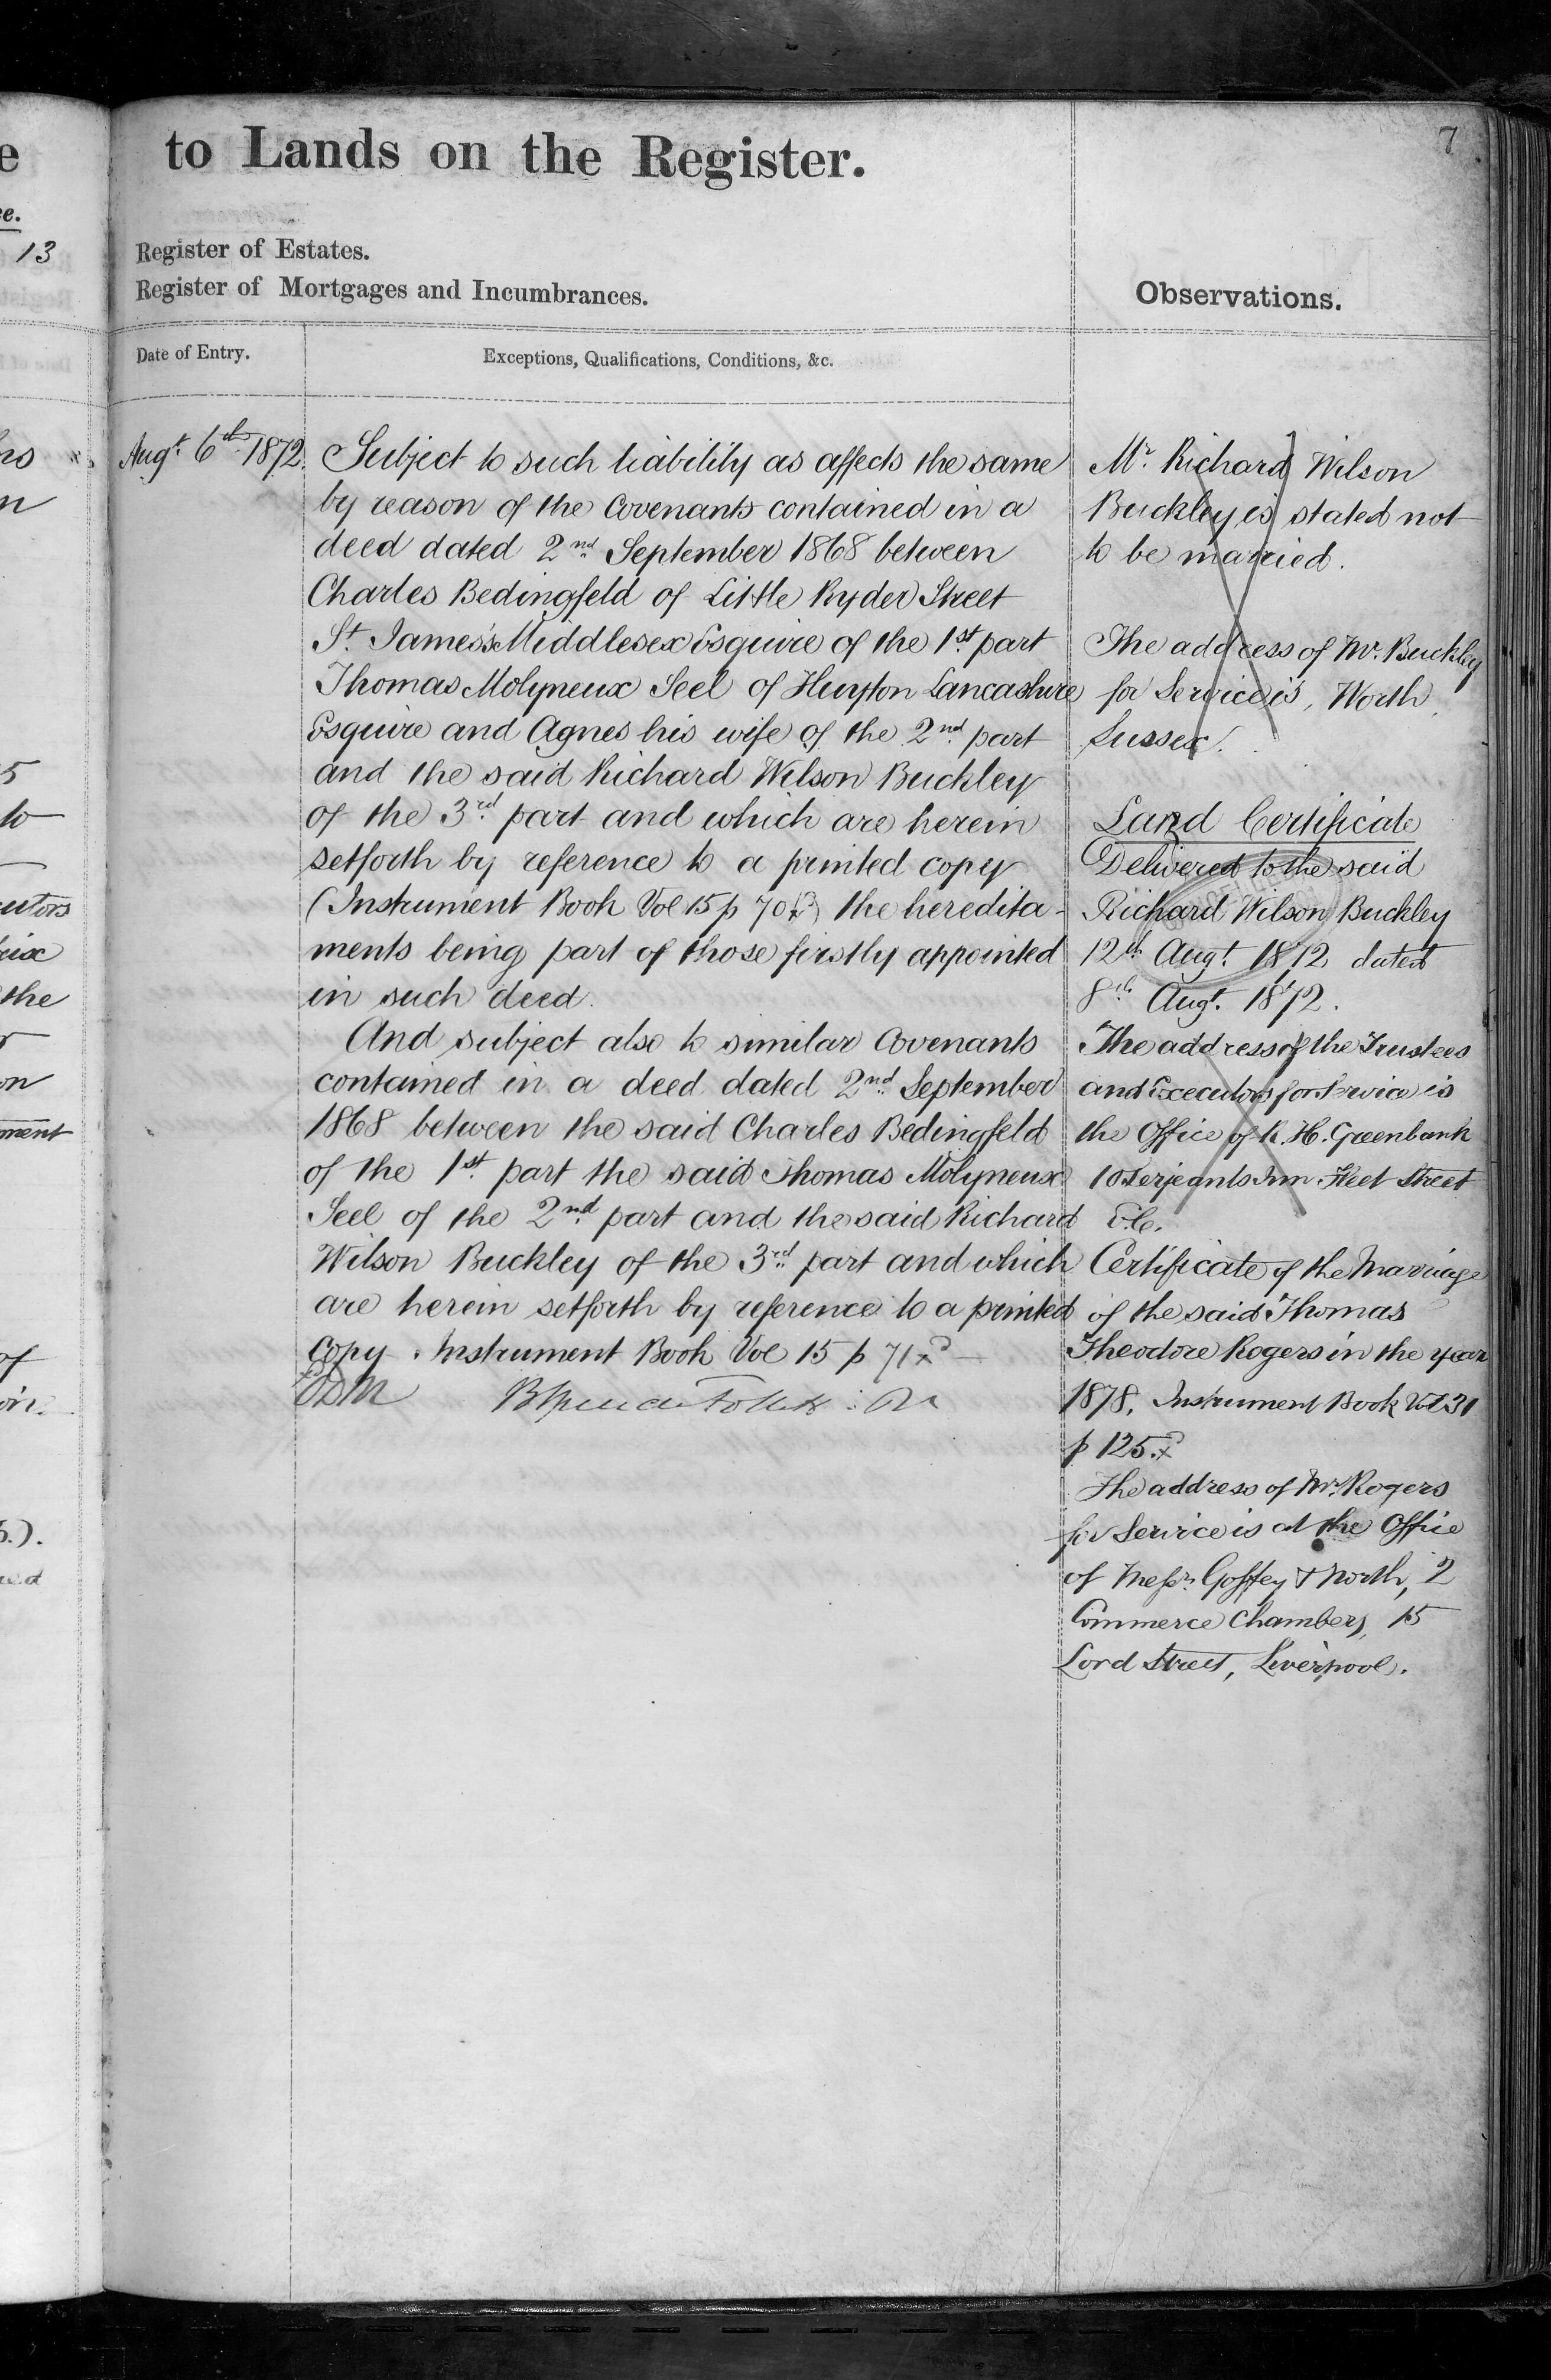 to Lands on the Register.
7
Register of Estates.
Register of Mortgages and Incumbrances.
Observations.
Date of Entry.
Exceptions, Qualifications, Conditions, &c.
Augt. 6th 1872.
Subject to such liability as affects the same
by reason of the Covenants contained in a
deed dated 2nd September 1868 between
Charles Bedingfeld of Little Ryder Street
St. James's Middlesex Esquire of the 1st part
Thomas Molyneux Seel of Huyton Lancashire
Esquire and Agnes his wife of the 2nd part
and the said Richard Wilson Buckley
of the 3rd part and which are herein
setforth by reference to a printed copy
(Instrument Book Vol 15 p 70) the heredita-
ments being part of those firstly appointed
in such deed.
And subject also to similar Covenants
contained in a deed dated 2nd September
1868 between the said Charles Bedingfeld
of the 1st part the said Thomas Molyneux
Seel of the 2nd part and the said Richard
Wilson Buckley of the 3rd part and which
are herein setforth by reference to a printed
copy. Instrument Book Vol 15 p 71
Mr. Richard Wilson
Buckley is stated not
to be married.
The address of Mr. Buckley
for Service is, Worth,
Sussex.
Land Certificate
Delivered to the said
Richard Wilson Buckley
12th Augt. 1872 dated
8th Augt. 1872.
The address of the Trustees
and Executors for Service is
the Office of R. H. Greenbank
10 Serjeants Inn Fleet Street
E.C.
Certificate of the Marriage
of the said Thomas
Theodore Rogers in the year
1878, Instrument Book Vol 31
p 125.
The address of Mr. Rogers
for Service is at the Office
of Messrs. Goffey & North, 2
Commerce Chambers, 15
Lord Street, Liverpool.
e
ce.
13
n
5
to
cutors
the
on
ment
of